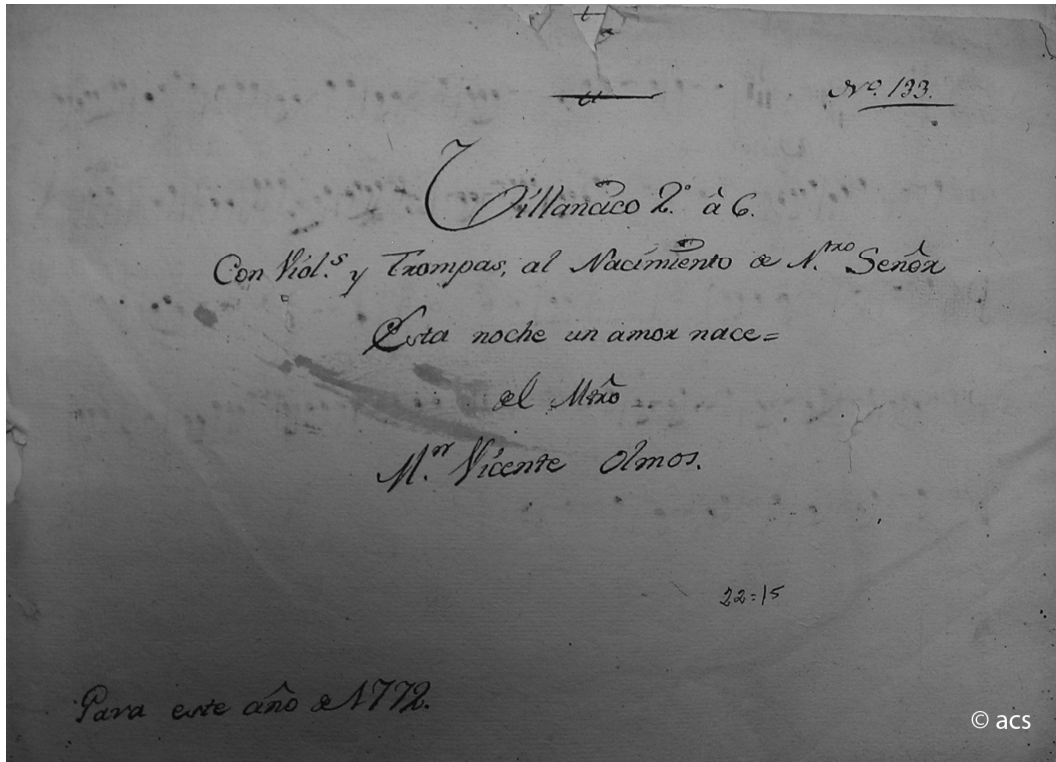 Nº. 133.
Villancico 2.º à 6.
Con Viol.ˢ y Trompas, al Nacimiento de N.tro Señor
Esta noche un amor nace=
del Mrô
M.n Vicente Olmos.
22=15
Para este año de 1772.
© acs